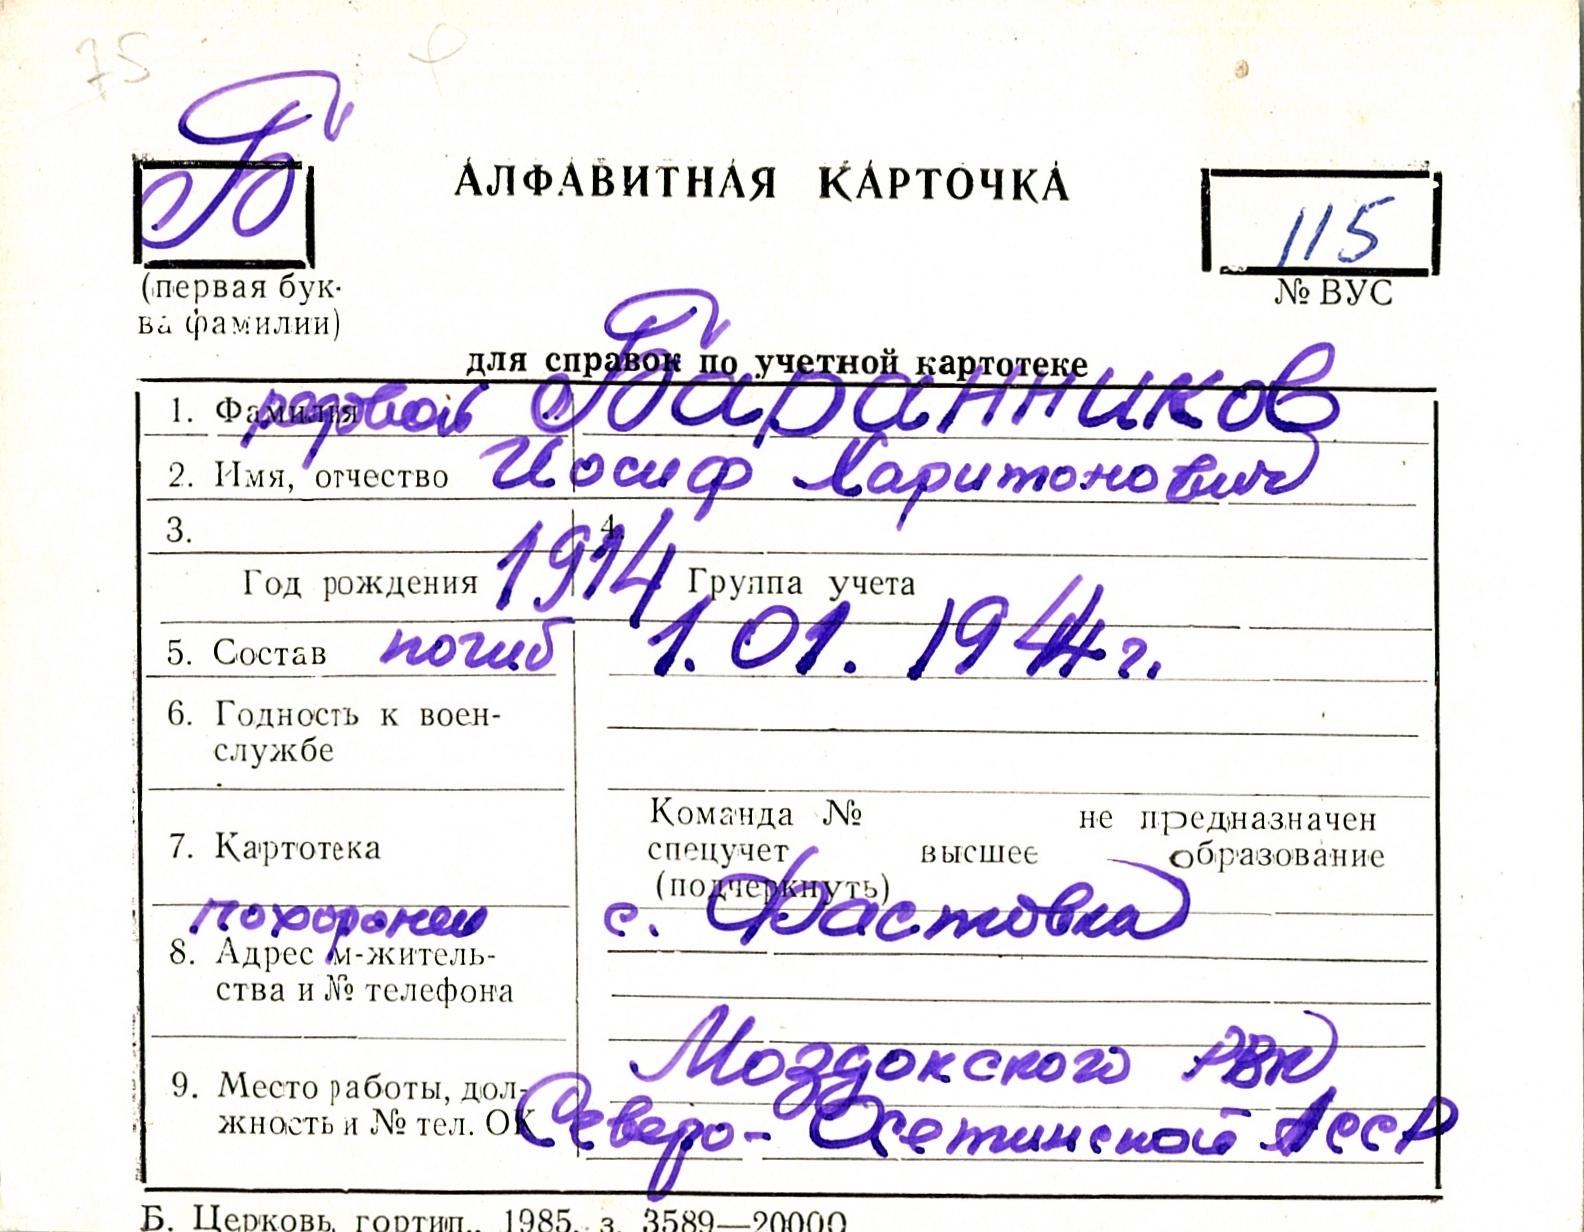 75
Б
АЛФАВИТНАЯ КАРТОЧКА
115
(первая бук-
ва фамилии)
№ ВУС
для справок по учетной картотеке
1. Фамилия рядовой Баранников
2. Имя, отчество Иосиф Харитонович
3. 4.
Год рождения 1914 Группа учета
5. Состав погиб 1.01.1944 г.
6. Годность к воен-
службе
Команда № не предназначен
7. Картотека спецучет высшее образование
(подчеркнуть)
похоронен с. Фастовка
8. Адрес м-житель-
ства и № телефона
Моздокского РВК
9. Место работы, дол-
жность и № тел. ОК Северо-Осетинской АССР
Б. Церковь, гортип., 1985, з. 3589—20000